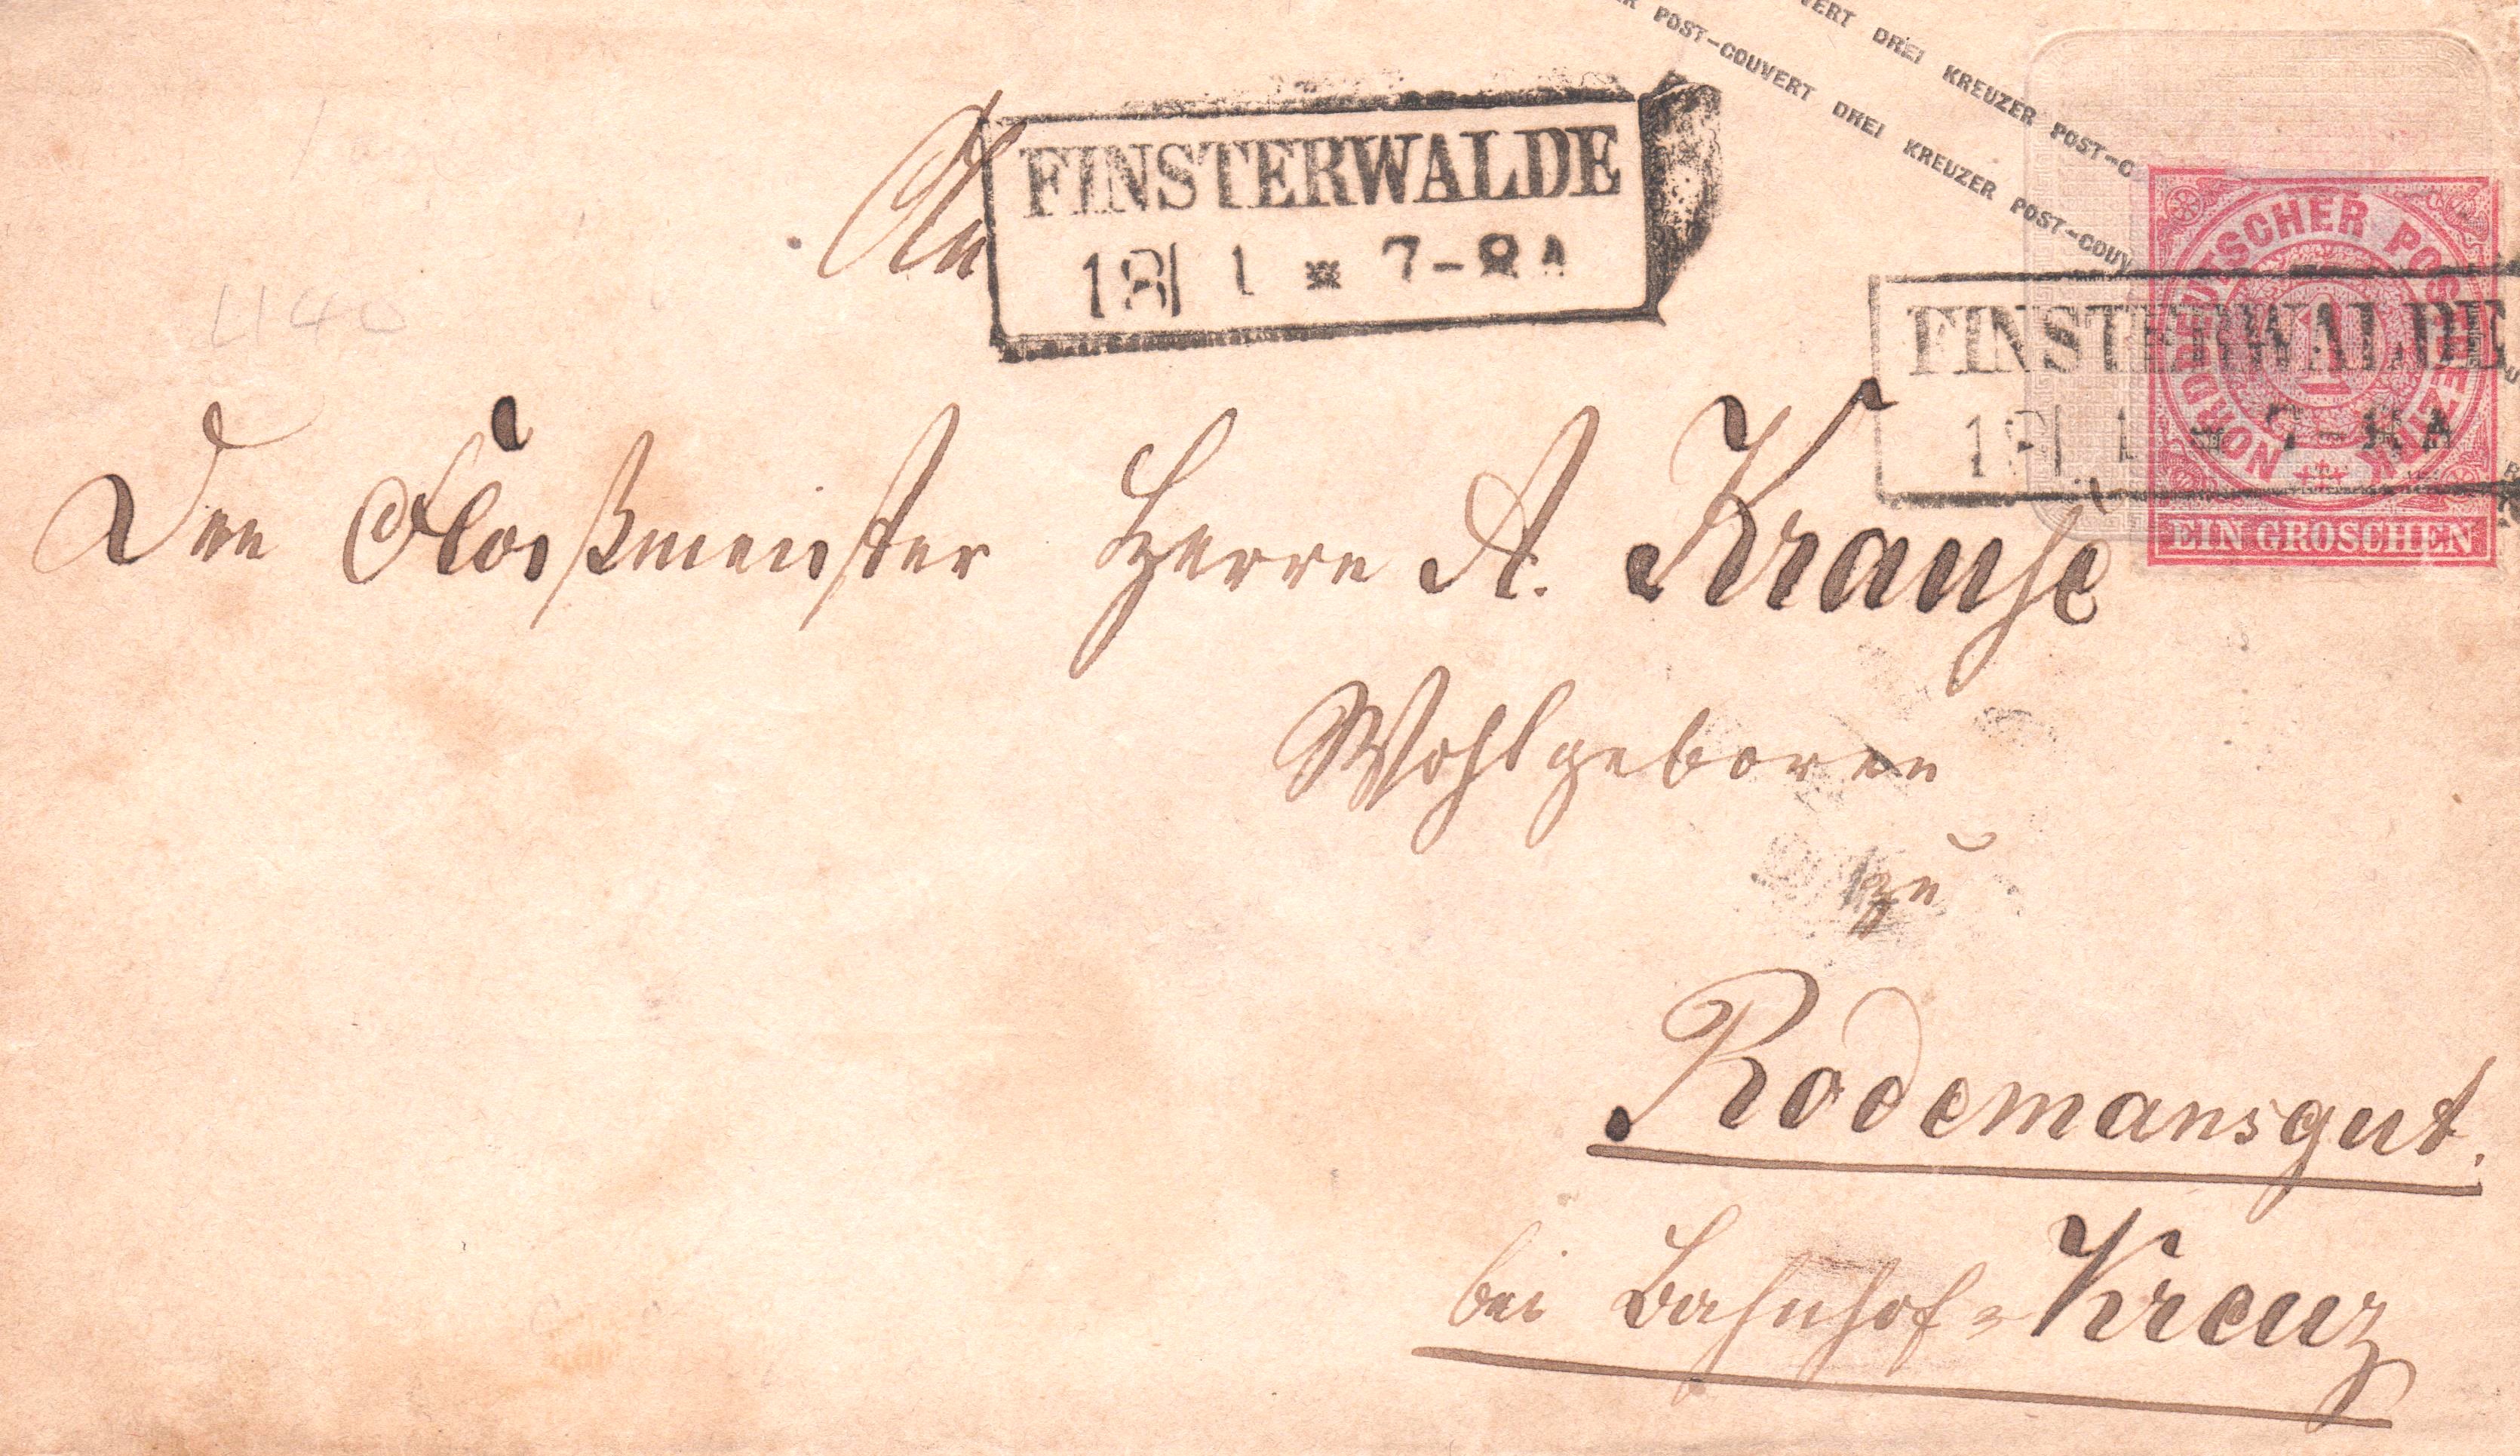 VERT DREI KREUZER POST-C
R POST-COUVERT DREI KREUZER POST-COUV
An
FINSTERWALDE
18| 1 * 7-8 A
NORDDEUTSCHER POSTBEZIRK
1
EIN GROSCHEN
FINSTERWALDE
18| 1 * 7-8 A
Den Flossmeister Herrn A. Krause
Wohlgeboren
zu
Rodemansgut.
bei Bahnhof-Kreuz